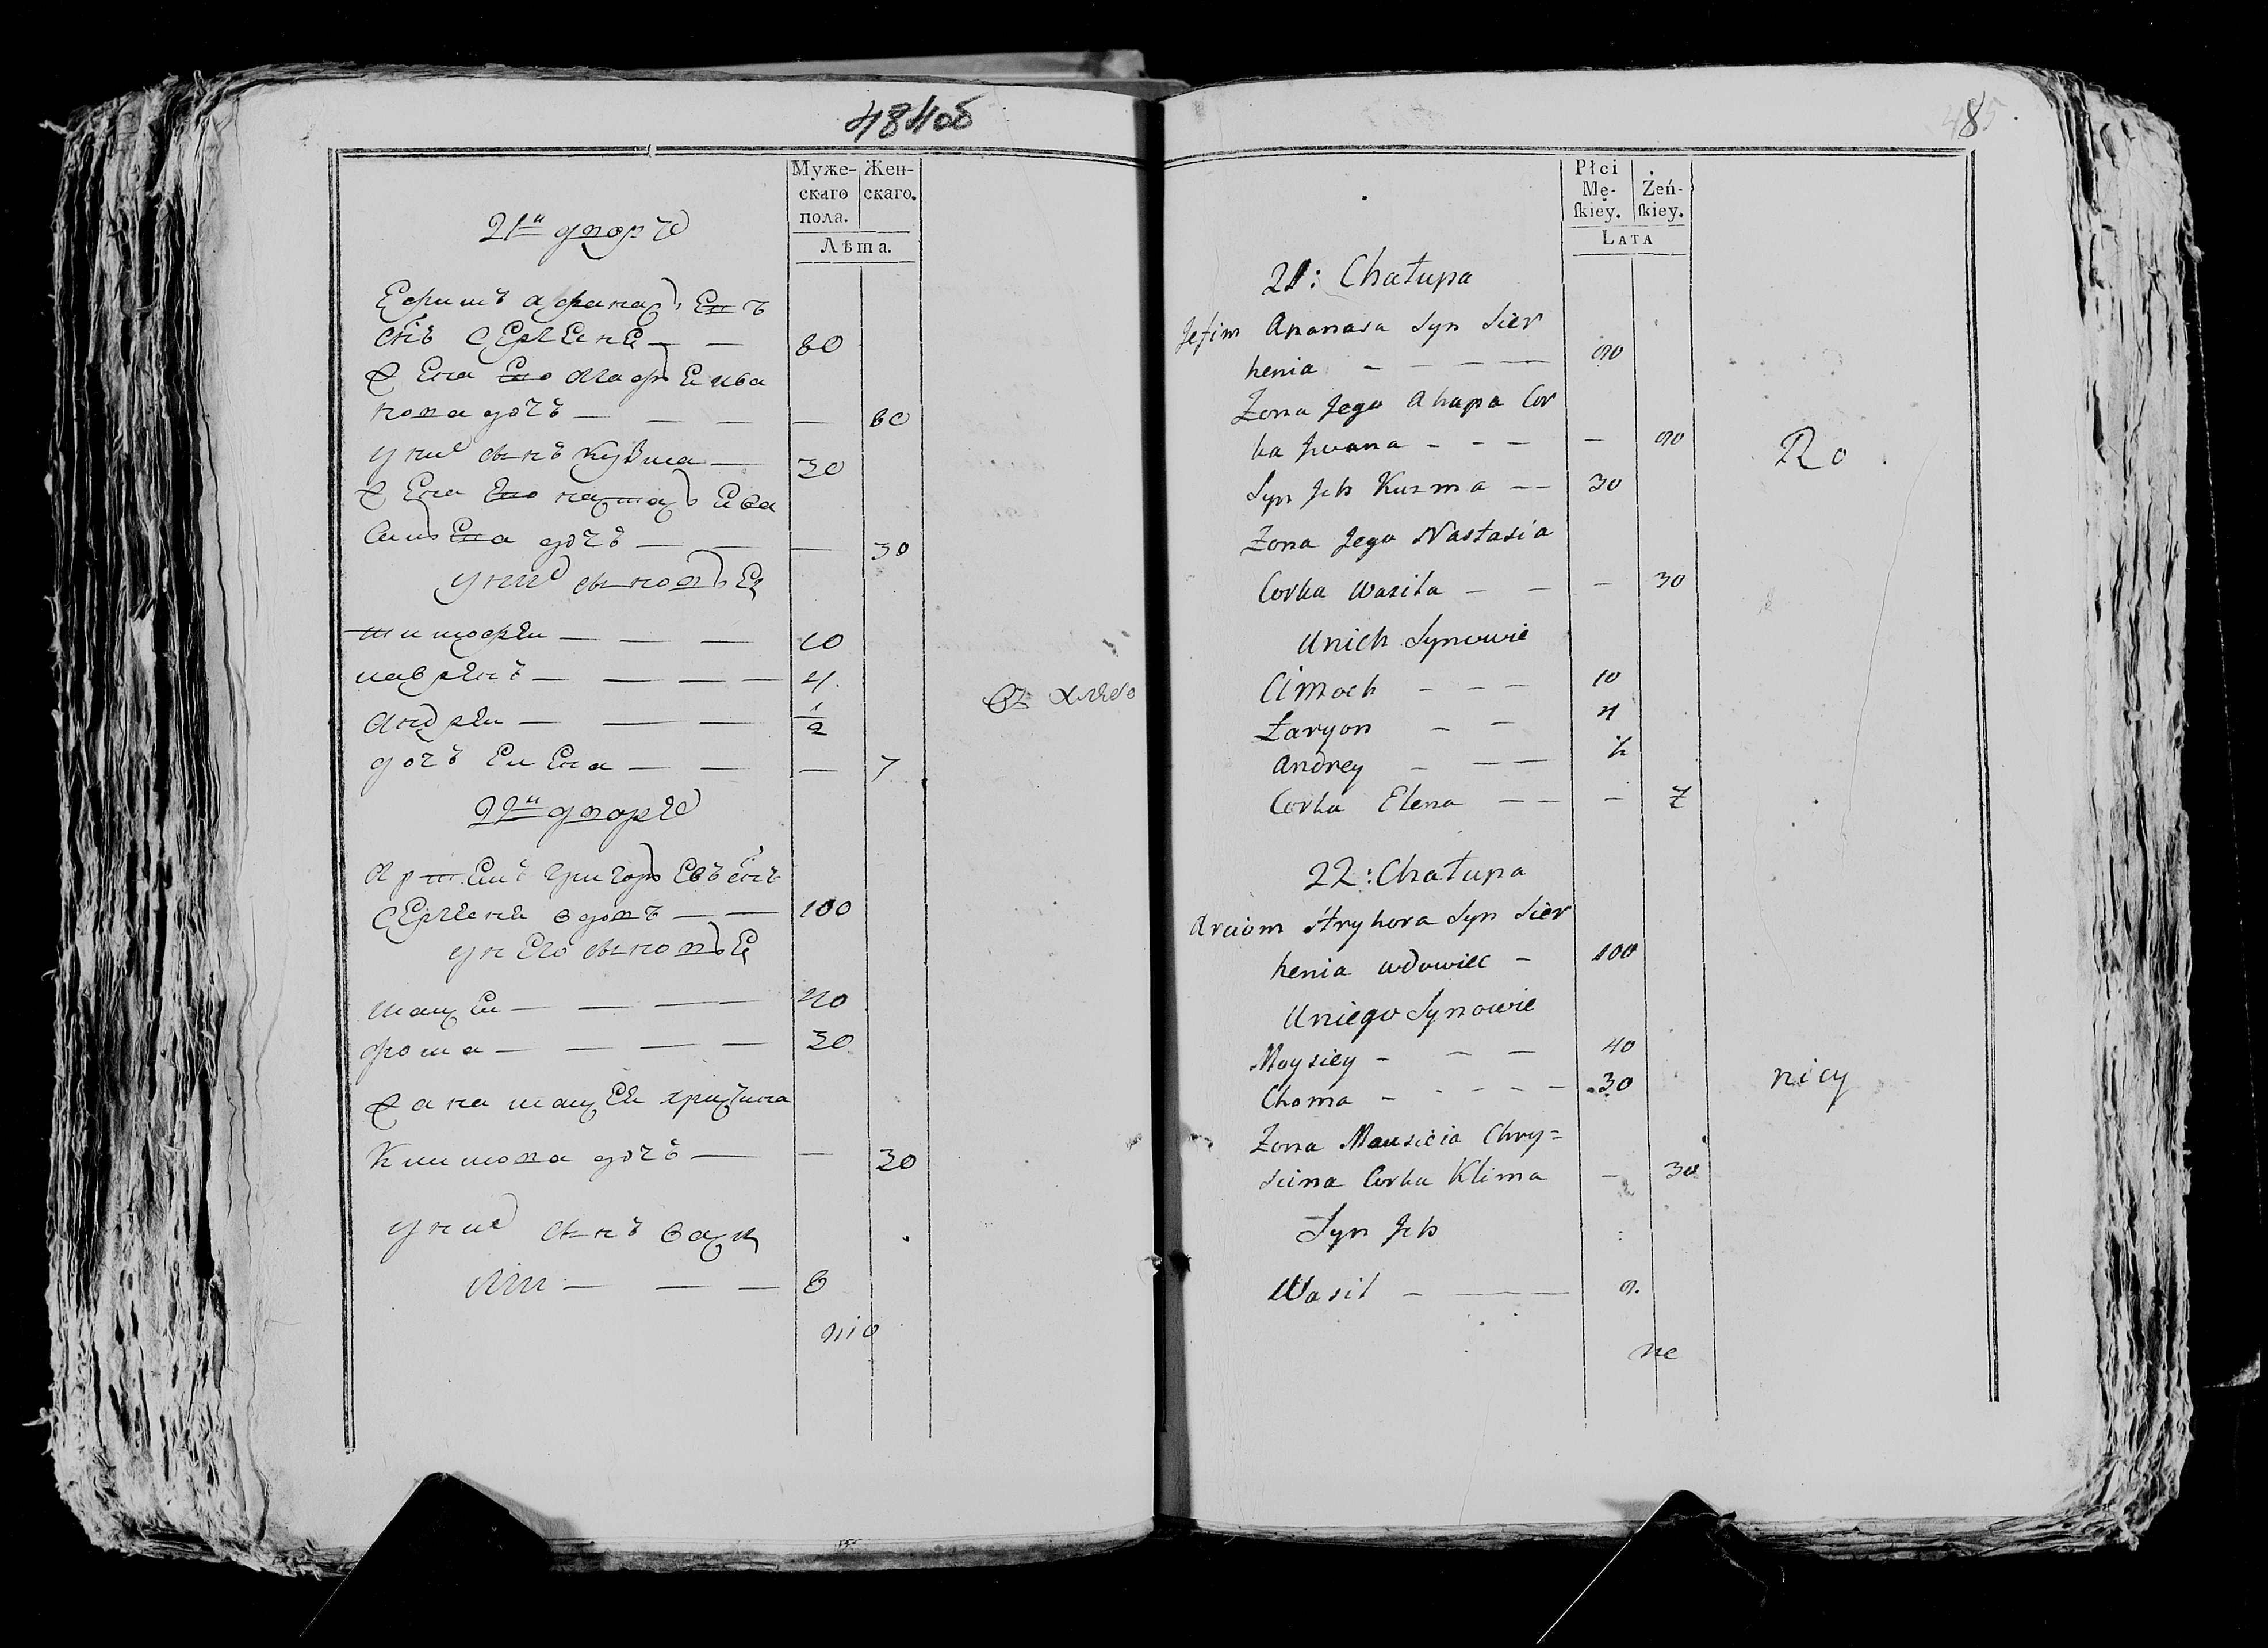 484об
Муже-
скаго
пола.
Жен-
скаго.
Лѣта.
21й дворъ
Ефимъ Афанасьевъ
снъ Сергеня — — 80
Жена ево Агафья Ива
нова дочь — — — — 80
у них сынъ Кузма — 30
Жена ево Настасья Ва
сильева дочь — — — 30
у них сыновья
Тимофей — — — 10
Лаврен — — — — 4
Андрей — — — 1/2
дочь Елена — — — 7
22й дворъ
Артемъ Григорьевъ снъ
Сергеня вдовъ — — 100
у него сыновья
Мацей — — — — 40
Фома — — — — 30
Жана Мацея Христина
Климова дочь — — 30
у них сынъ Васи
лій — — — 8
Хлебо
485
Płci
Mę-
skiey.
Żeń-
skiey.
LATA
21: Chałupa
Jefim Apanasa Syn Sier
henia — — — — 80
Zona Jego Ahapa Cor
ka Jwana — — — — 80
Syn Jch Kuzma — — 30
Zona Jego Nastasia
Corka Wasila — — — 30
Unich Synowie
Cimoch — — — 10
Łaryon — — 4
Andrey — — — ½
Corka Elena — — — 7
22: Chałupa
Arciom Hryhora Syn Sier
henia wdowiec — 100
Uniego Synowie
Moysiey — — — 40
Choma — — — — 30
Zona Mausieia Chry=
scina Corka Klima — 30
Syn Jch
Wasil — — — 8.
Ro
nicy